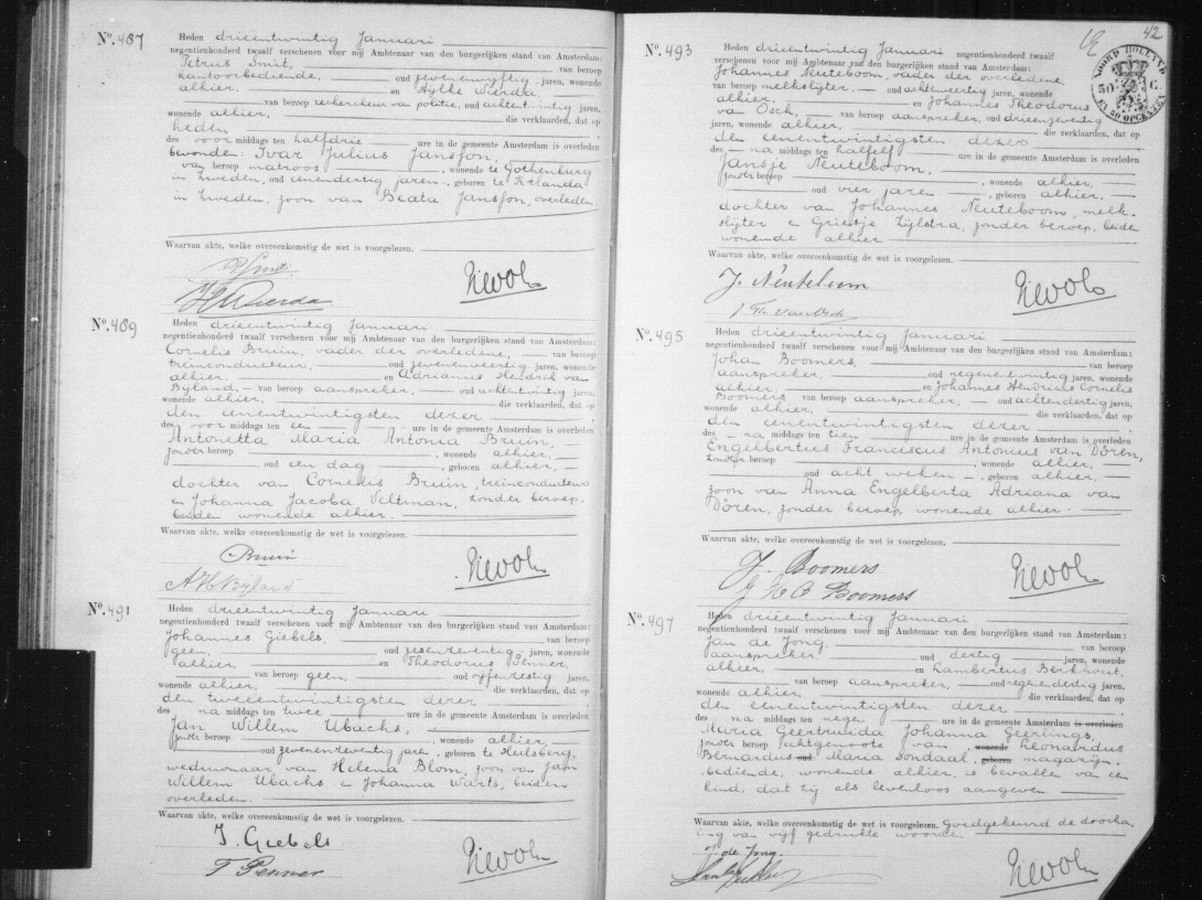 Nº. 487
Heden drieëntwintig Januari
negentienhonderd twaalf verschenen voor mij Ambtenaar van den burgerlijken stand van Amsterdam:
Petrus Smit, van beroep
kantoorbediende, oud zevenenvijftig jaren, wonende
alhier, en Hylke Wierda,
van beroep rechercheur van politie, oud achtentwintig jaren,
wonende alhier, die verklaarden, dat op
heden
des voor middags ten halfdrie ure in de gemeente Amsterdam is overleden
bevonden: Ivar Julius Jansson,
van beroep matroos, wonende te Gothenburg
in Zweden, oud eenendertig jaren, geboren te
in Zweden, zoon van Beata Jansson, overleden.
Waarvan akte, welke overeenkomstig de wet is voorgelezen.
P Smit
H Wierda
Nº. 489
Heden drieëntwintig Januari
negentienhonderd twaalf verschenen voor mij Ambtenaar van den burgerlijken stand van Amsterdam:
Cornelis Bruin, vader der overledene, van beroep
treinconducteur, oud zevenenveertig jaren, wonende
alhier, en Adrianus Hendrik van
Bijland, van beroep aanspreker, oud achtentwintig jaren,
wonende alhier, die verklaarden, dat op
den eenentwintigsten dezer
des voor middags ten een ure in de gemeente Amsterdam is overleden
Antonetta Maria Antonia Bruin,
zonder beroep, wonende alhier,
oud een dag, geboren alhier,
dochter van Cornelis Bruin, treinconducteur
en Johanna Jacoba Veltman, zonder beroep,
beiden wonende alhier.
Waarvan akte, welke overeenkomstig de wet is voorgelezen.
Bruin
A H v Bijland
Nº. 491
Heden drieëntwintig Januari
negentienhonderd twaalf verschenen voor mij Ambtenaar van den burgerlijken stand van Amsterdam:
Johannes Giebels, van beroep
geen, oud zesenzeventig jaren, wonende
alhier, en Theodorus Penner,
van beroep geen, oud vijfenzestig jaren,
wonende alhier, die verklaarden, dat op
den tweeëntwintigsten dezer
des na middags ten twee ure in de gemeente Amsterdam is overleden
Jan Willem Ubachs,
zonder beroep, wonende alhier,
oud zevenenzeventig jaren, geboren te Heilsberg,
weduwnaar van Helena Blom, zoon van Jan
Willem Ubachs en Johanna Wurts, beiden
overleden.
Waarvan akte, welke overeenkomstig de wet is voorgelezen.
J. Giebels
T Penner
42
NOORD HOLLAND
50 C.
EN 50 OPCENTEN
Nº. 493
Heden drieëntwintig Januari negentienhonderd twaalf
verschenen voor mij Ambtenaar van den burgerlijken stand van Amsterdam:
Johannes Neuteboom, vader der overledene,
van beroep melkslijter, oud achtenveertig jaren, wonende
alhier, en Johannes Theodorus
van Osch, van beroep aanspreker, oud drieenzeventig
jaren, wonende alhier, die verklaarden, dat op
den eenentwintigsten dezer
des na middags ten halfelf ure in de gemeente Amsterdam is overleden
Jansje Neuteboom,
zonder beroep, wonende alhier,
oud vier jaren, geboren alhier,
dochter van Johannes Neuteboom, melk-
slijter en Grietje Zijlstra, zonder beroep, beiden
wonende alhier
Waarvan akte, welke overeenkomstig de wet is voorgelezen.
J. Neuteboom
J Th. van Osch
Nº. 495
Heden drieëntwintig Januari
negentienhonderd twaalf verschenen voor mij Ambtenaar van den burgerlijken stand van Amsterdam:
Johan Boomers, van beroep
aanspreker, oud negenentwintig jaren, wonende
alhier, en Johannes Hendricus Cornelis
Boomers van beroep aanspreker, oud achtendertig jaren,
wonende alhier, die verklaarden, dat op
den eenentwintigsten dezer
des na middags ten tien ure in de gemeente Amsterdam is overleden
Engelbertus Franciscus Antonius van Dören,
zonder beroep, wonende alhier,
oud acht weken, geboren alhier,
zoon van Anna Engelberta Adriana van
Dören, zonder beroep, wonende alhier.
Waarvan akte, welke overeenkomstig de wet is voorgelezen.
J. Boomers
J H C Boomers
Nº. 497
Heden drieëntwintig Januari
negentienhonderd twaalf verschenen voor mij Ambtenaar van den burgerlijken stand van Amsterdam:
Jan de Jong, van beroep
aanspreker, oud dertig jaren, wonende
alhier, en Lambertus Berkhout,
van beroep aanspreker, oud negenendertig jaren,
wonende alhier, die verklaarden, dat op
den eenentwintigsten dezer
des na middags ten negen ure in de gemeente Amsterdam is overleden
Maria Geertruida Johanna Geerlings,
zonder beroep echtgenoote van, wonende Leonardus
Bernardus oud Maria Sondaal, geboren magazijn-
bediende, wonende alhier, is bevallen van een
kind, dat zij als levenloos aangeven
Waarvan akte, welke overeenkomstig de wet is voorgelezen. Goedgekeurd de doorha-
ling van vijf gedrukte woorden
J. de Jong.